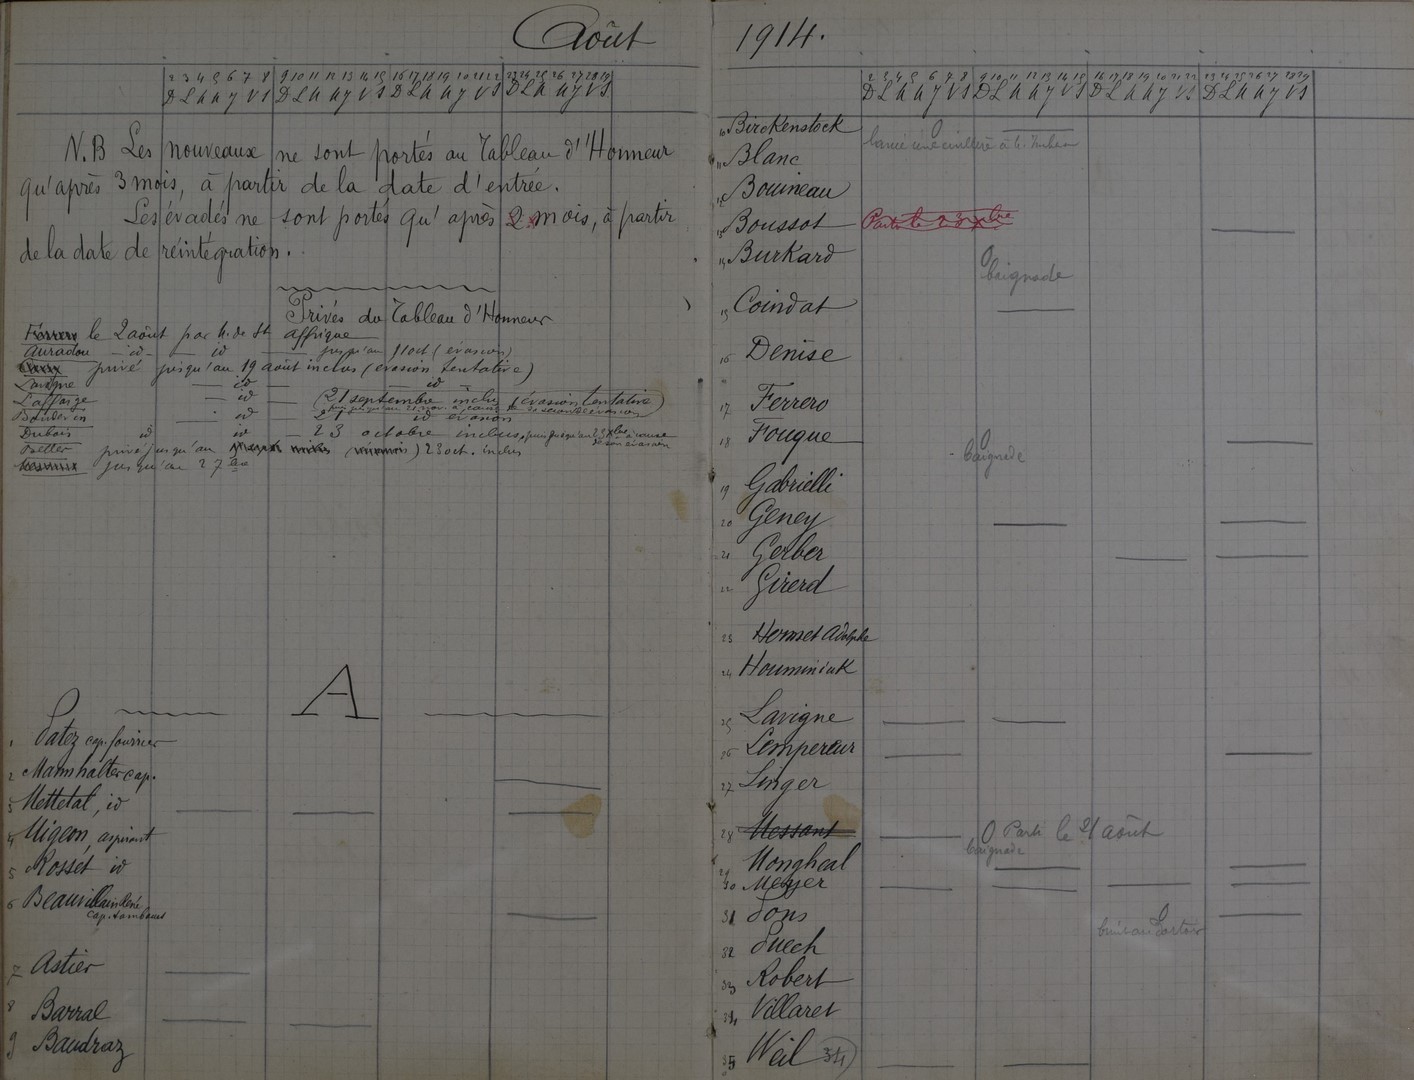 Août
2 3 4 5 6 7 8 9 10 11 12 13 14 15 16 17 18 19 20 21 22 23 24 25 26 27 28 29
D L M M J V S D L M M J V S D L M M J V S D L M M J V S
N.B Les nouveaux ne sont portés au Tableau d'Honneur
qu'après 3 mois, à partir de la date d'entrée.
Les évadés ne sont portés qu'après 2 mois, à partir
de la date de réintégration.
Privés du Tableau d'Honneur
Ferrero le 2 août par M. de St Affrique
Auradou id id jusqu'au 1 oct (évasion)
privé jusqu'au 19 août inclus (évasion tentative)
Lavigne id id
Laffarge id (21 septembre inclus (évasion tentative)
id 21 id évasion
Dubois id id 23 octobre inclus
privé jusqu'au 23 oct. inclus
jusqu'au 27
A
1 Patez cap. fourrier
2 Mannhalter cap.
3 Mettetal, id
4 Migeon, aspirant
5 Rosset id
6 Beauvillain René
cap. tambours
7 Astier
8 Barral
9 Baudraz
1914.
2 3 4 5 6 7 8 9 10 11 12 13 14 15 16 17 18 19 20 21 22 23 24 25 26 27 28 29
D L M M J V S D L M M J V S D L M M J V S D L M M J V S
10 Birckenstock
11 Blanc
12 Bouineau
13 Boussot
14 Burkard 0
baignade
15 Coindat
16 Denise
17 Ferrero
18 Fouque 0
baignade
19 Gabrielli
20 Geney
21 Gerber
22 Girerd
23 Hermet Adolphe
24 Houminiuk
25 Lavigne
26 Lempereur
27 Linger
28 Messant 0 Parti le 21 août
baignade
29 Mongheal
30 Meyer
31 Pons 0
32 Puech
33 Robert
34 Villaret
35 Weil 34